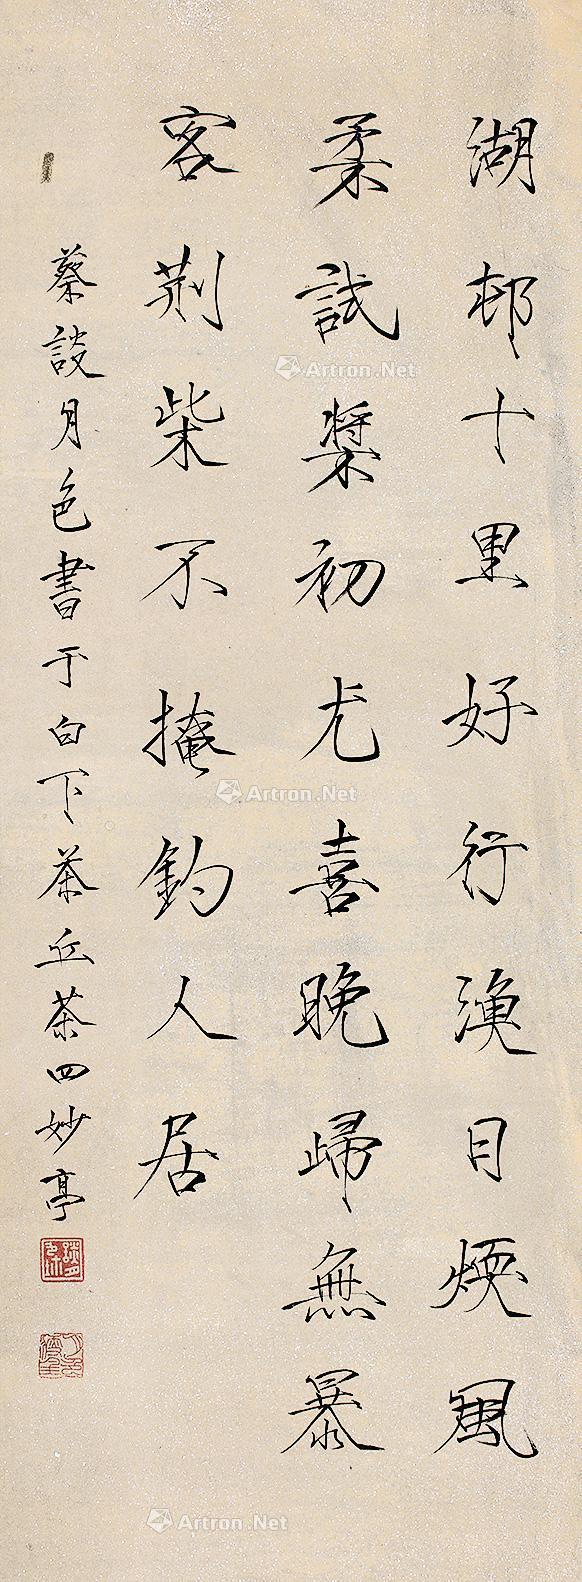 湖邨十里好行漁日煗風
柔試槳初尤喜晚歸無暴
客荆柴不掩釣人居
蔡談月色書于白下茶丘茶四妙亭
Artron.Net
Artron.Net
Artron.Net